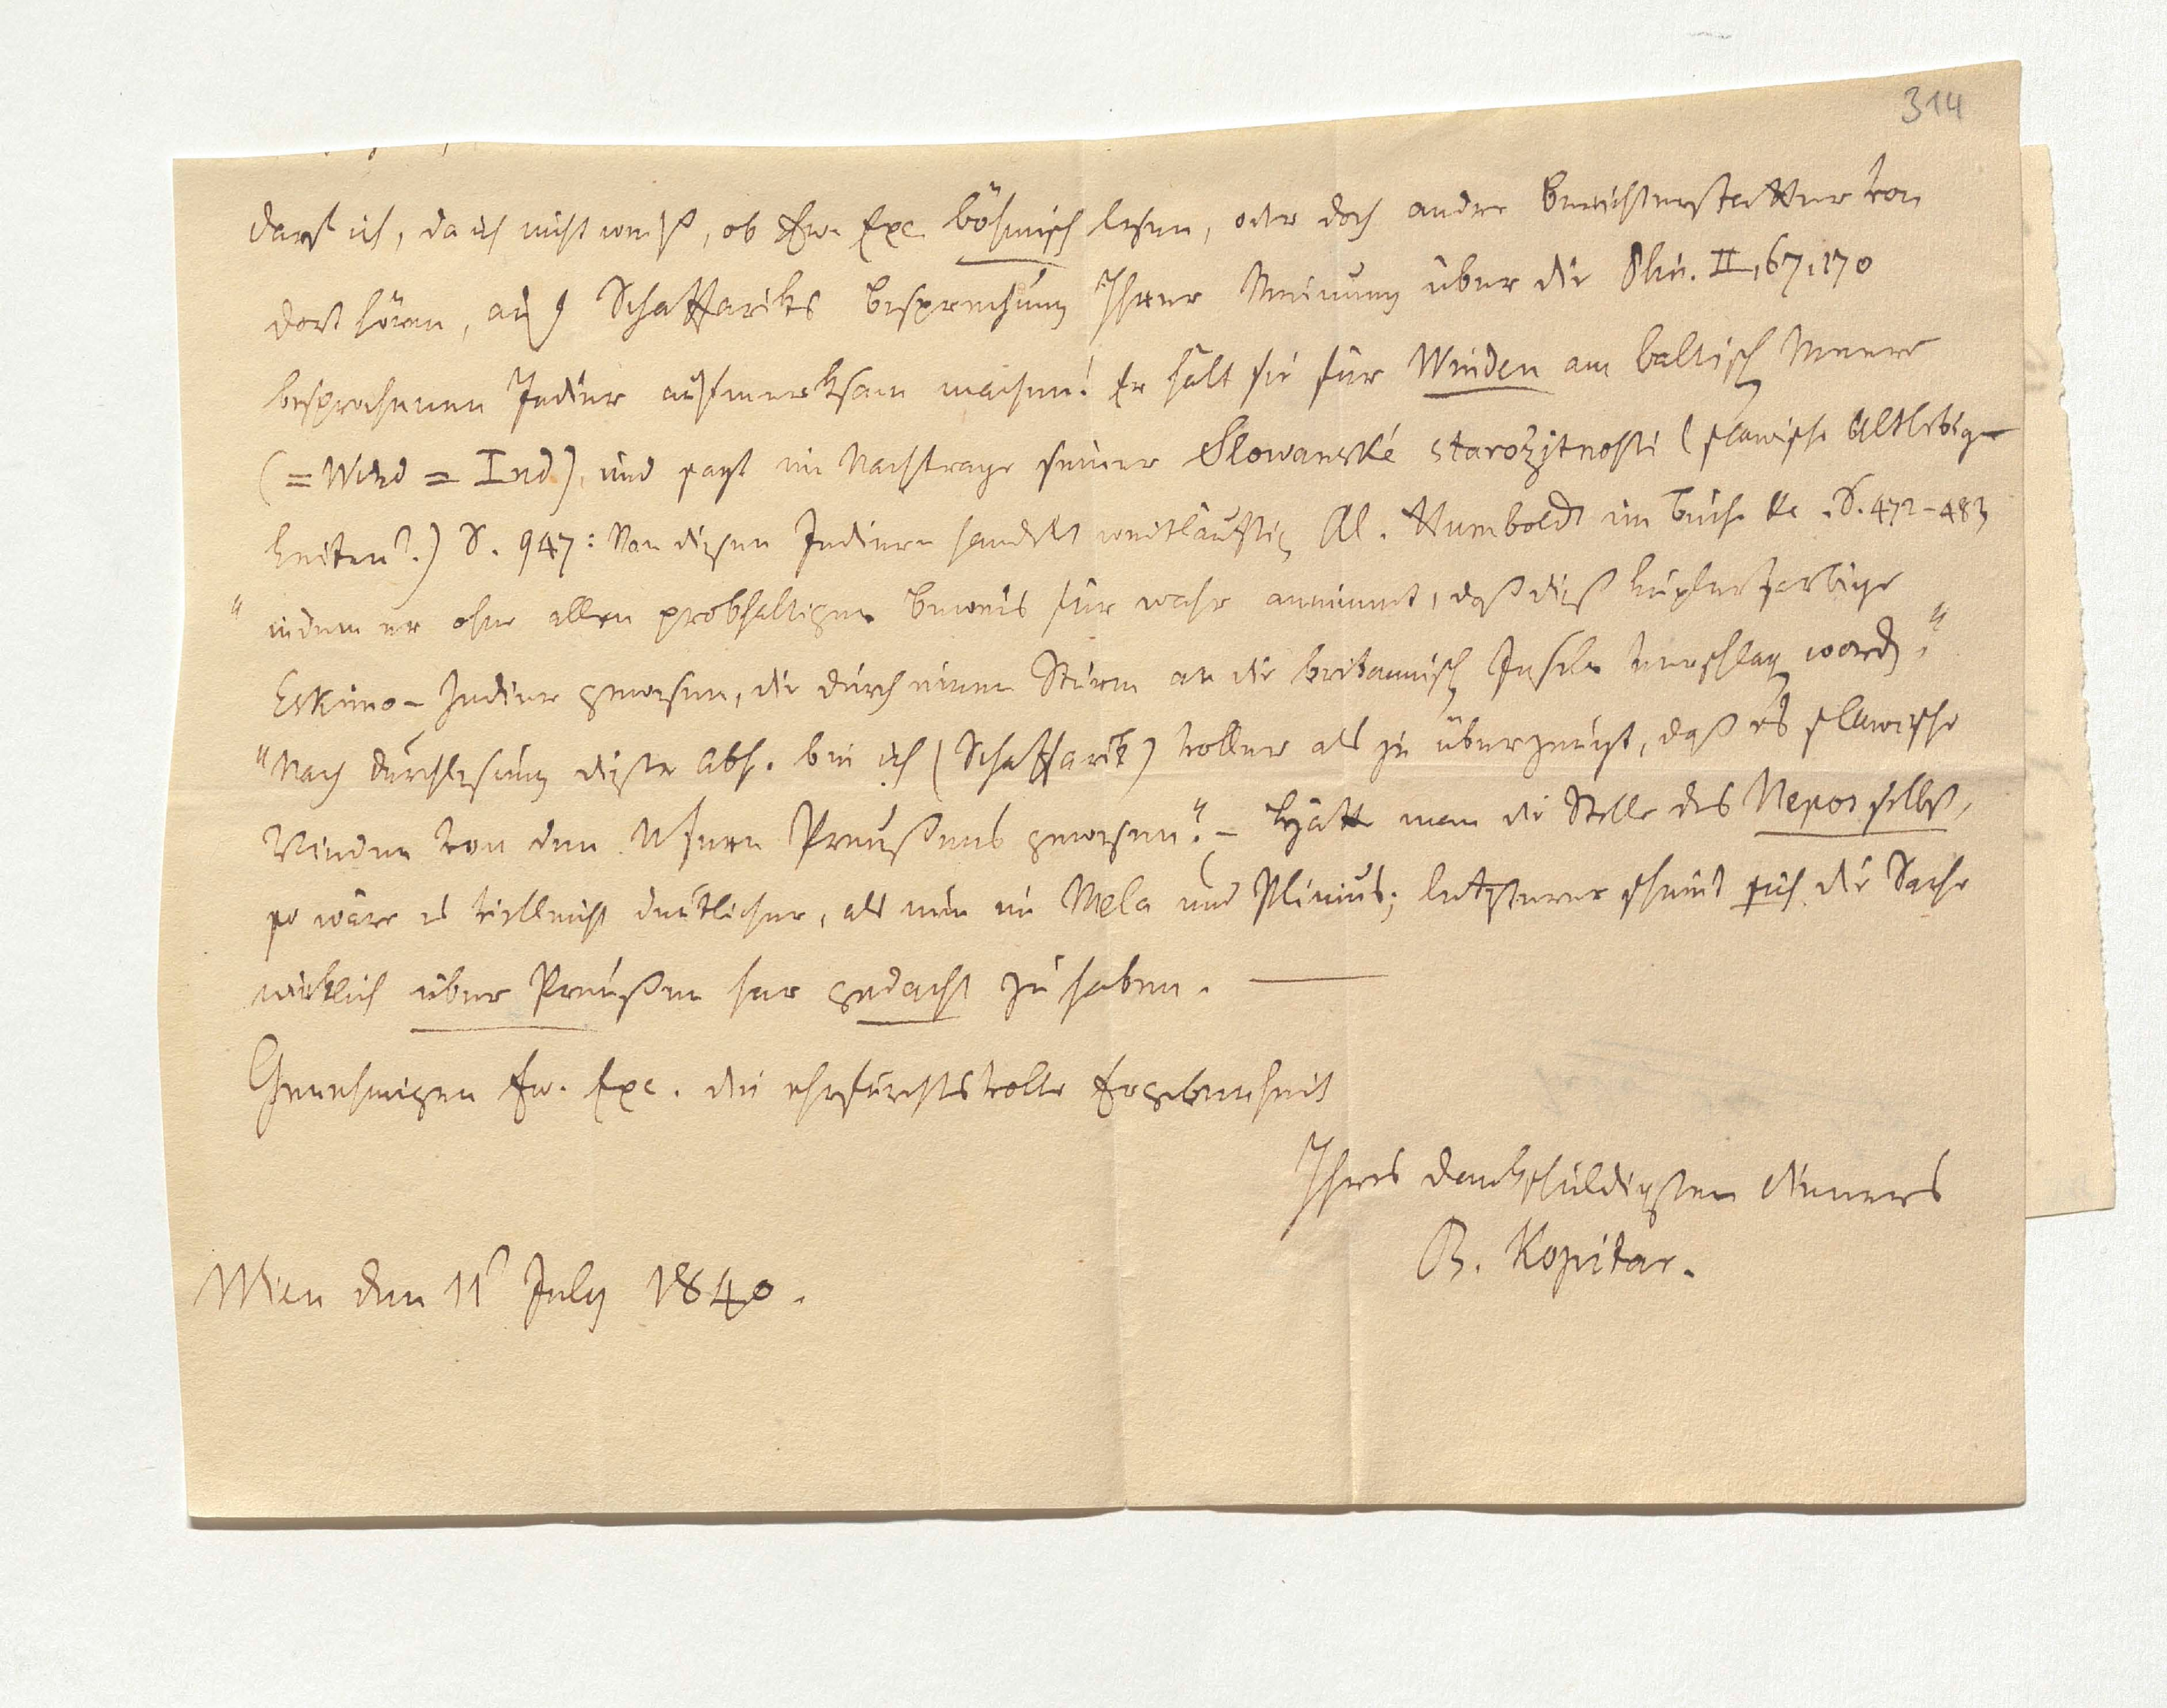 314
darf ich, da ich nicht weiß, ob Ew. Exc. böhmisch lesen, oder doch andre Berichterstatter von
dort hören, auf Schaffariks Besprechung Ihrer Meinung über die Plin. II, 67, 170
besprochenen Indier aufmerksam machen! Er hält sie für Winden am baltisch Meere
(= Wind = Ind), und sagt im Nachtrage seiner Slowanské starožitnosti (slawische Altlebig-
keiten?.) S. 947: Von diesen Indiern handelt weitläuftig Al. Humboldt im Buche &c. S. 472-483
"indem er ohne allen probhaltigen Beweis für wahr annimmt, daß dieß kupferfarbige
Eskimo-Indier gewesen, die durch einen Sturm an die britannisch Inseln verschlag word."
"Nach Durchlesung dieser Abh. bin ich (Schaffarik) voller als je überzeugt, daß es slawische
Vinden von den Ufern Preußens gewesen." – Hätte man die Stelle des Nepos selbst,
so wäre es vielleicht deutlicher, als nun im Mela und Plinius; letzterer scheint sich die Sache
wirklich über Preußen her gedacht zu haben. —
Genehmigen Ew. Exc. die ehrfurchtsvolle Ergebenheit
Ihres dankschuldigsten Dieners
B. Kopitar.
Wien den 11 July 1840.